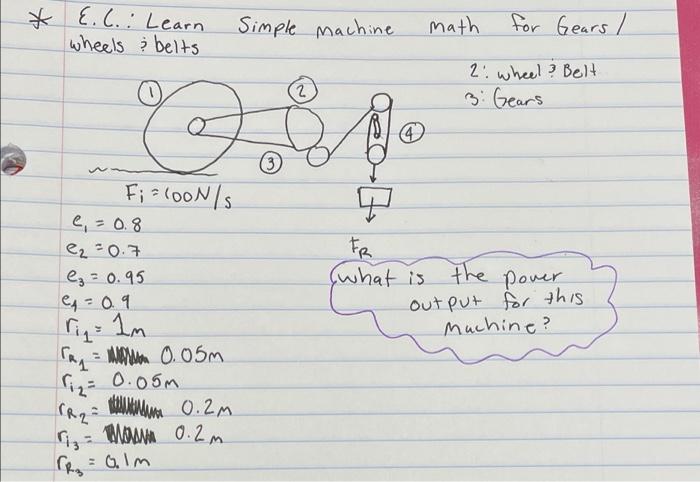 * E.C.: Learn Simple machine math for Gears/
wheels & belts
2: wheel & Belt
3: Gears
1
2
3
4
Fi = 100N/s
e1 = 0.8
e2 = 0.7
e3 = 0.95
e4 = 0.9
ri1 = 1m
rR1 = 0.05m
ri2 = 0.05m
rR2 = 0.2m
ri3 = 0.2m
rR3 = 0.1m
FR
what is the power
output for this
machine?